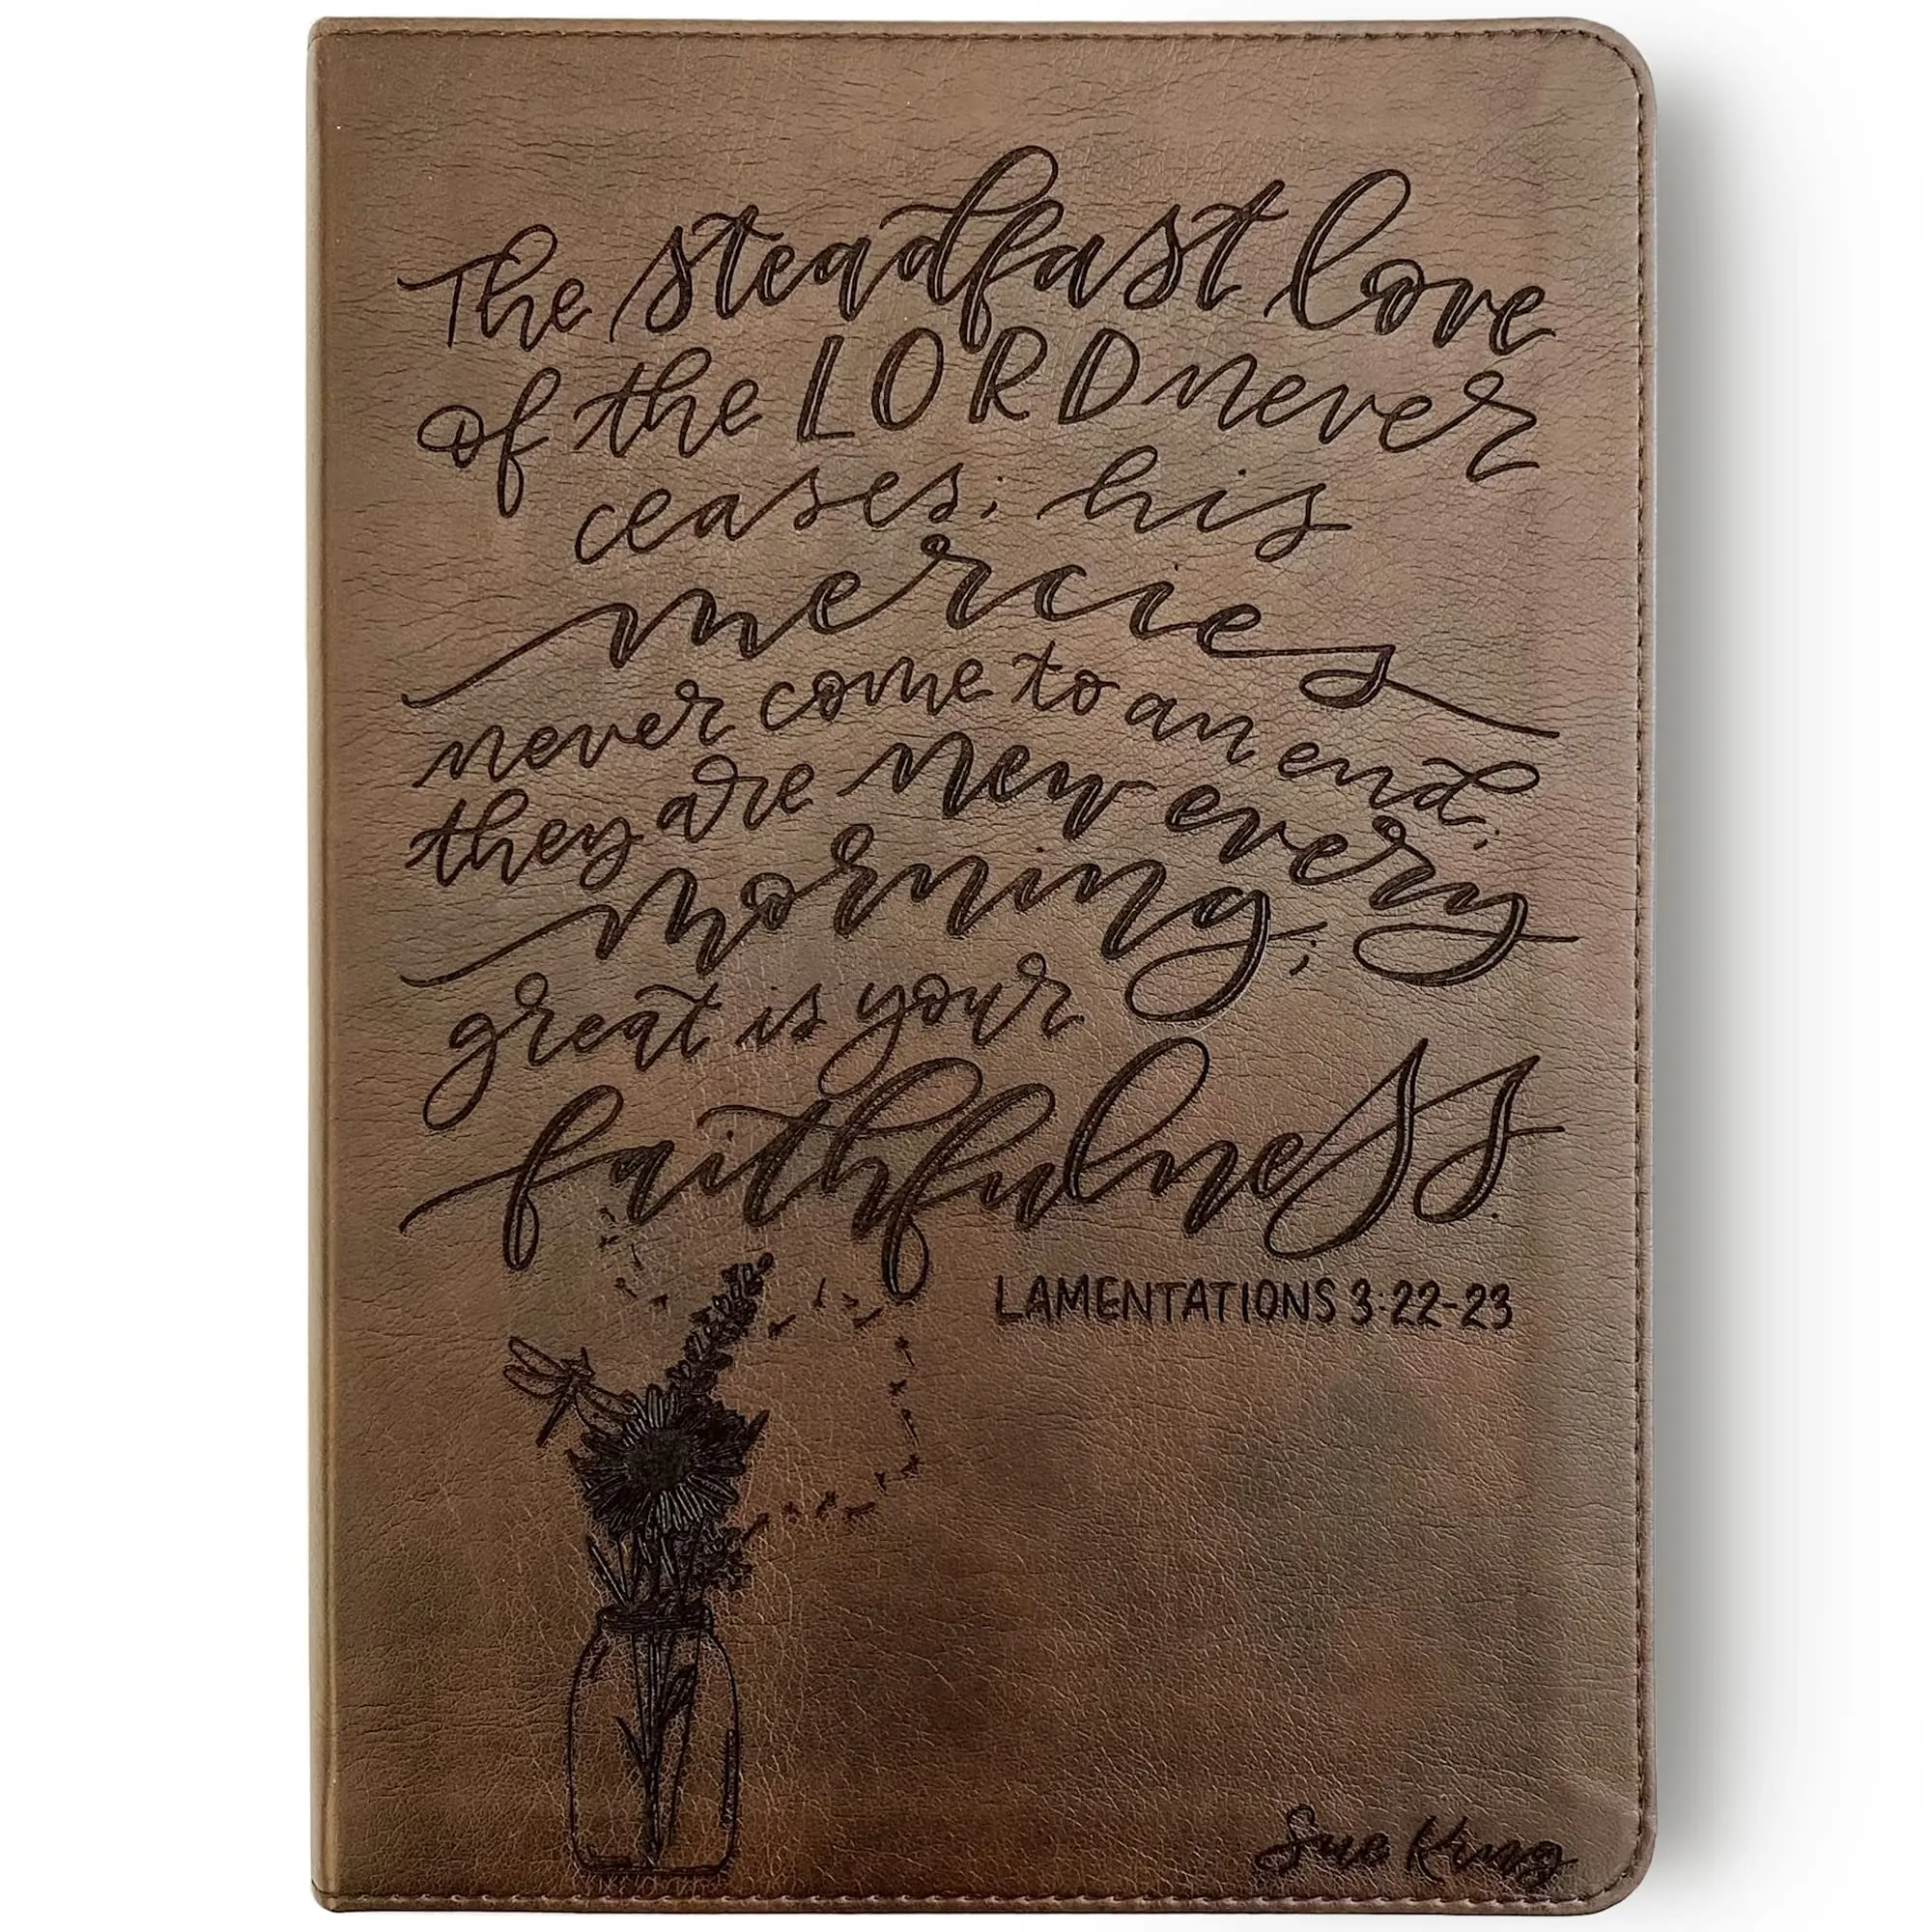 The steadfast love
of the LORD never
ceases; his
mercies
never come to an end;
they are new every
morning;
great is your
faithfulness.
LAMENTATIONS 3:22-23
Sue King